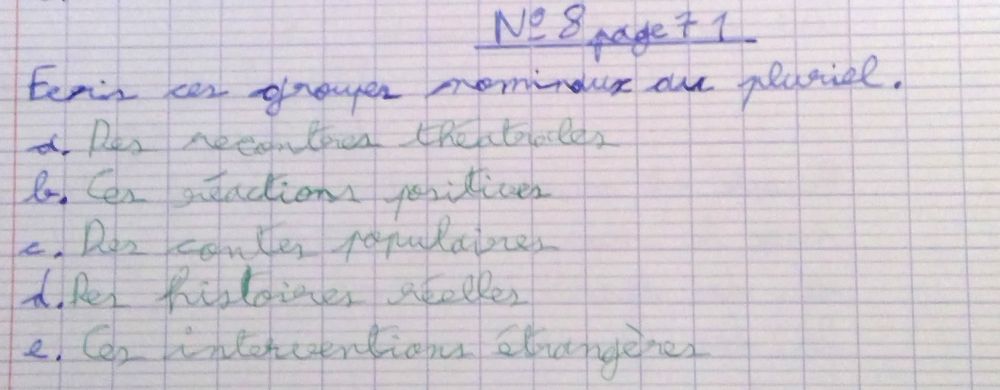 N° 8 page 71
Ecris ces groupes nominaux au pluriel.
a. Des recontres théatrales
b. Ces réactions positives
c. Des contes populaires
d. Des histoires réelles
e. Ces interventions étrangères